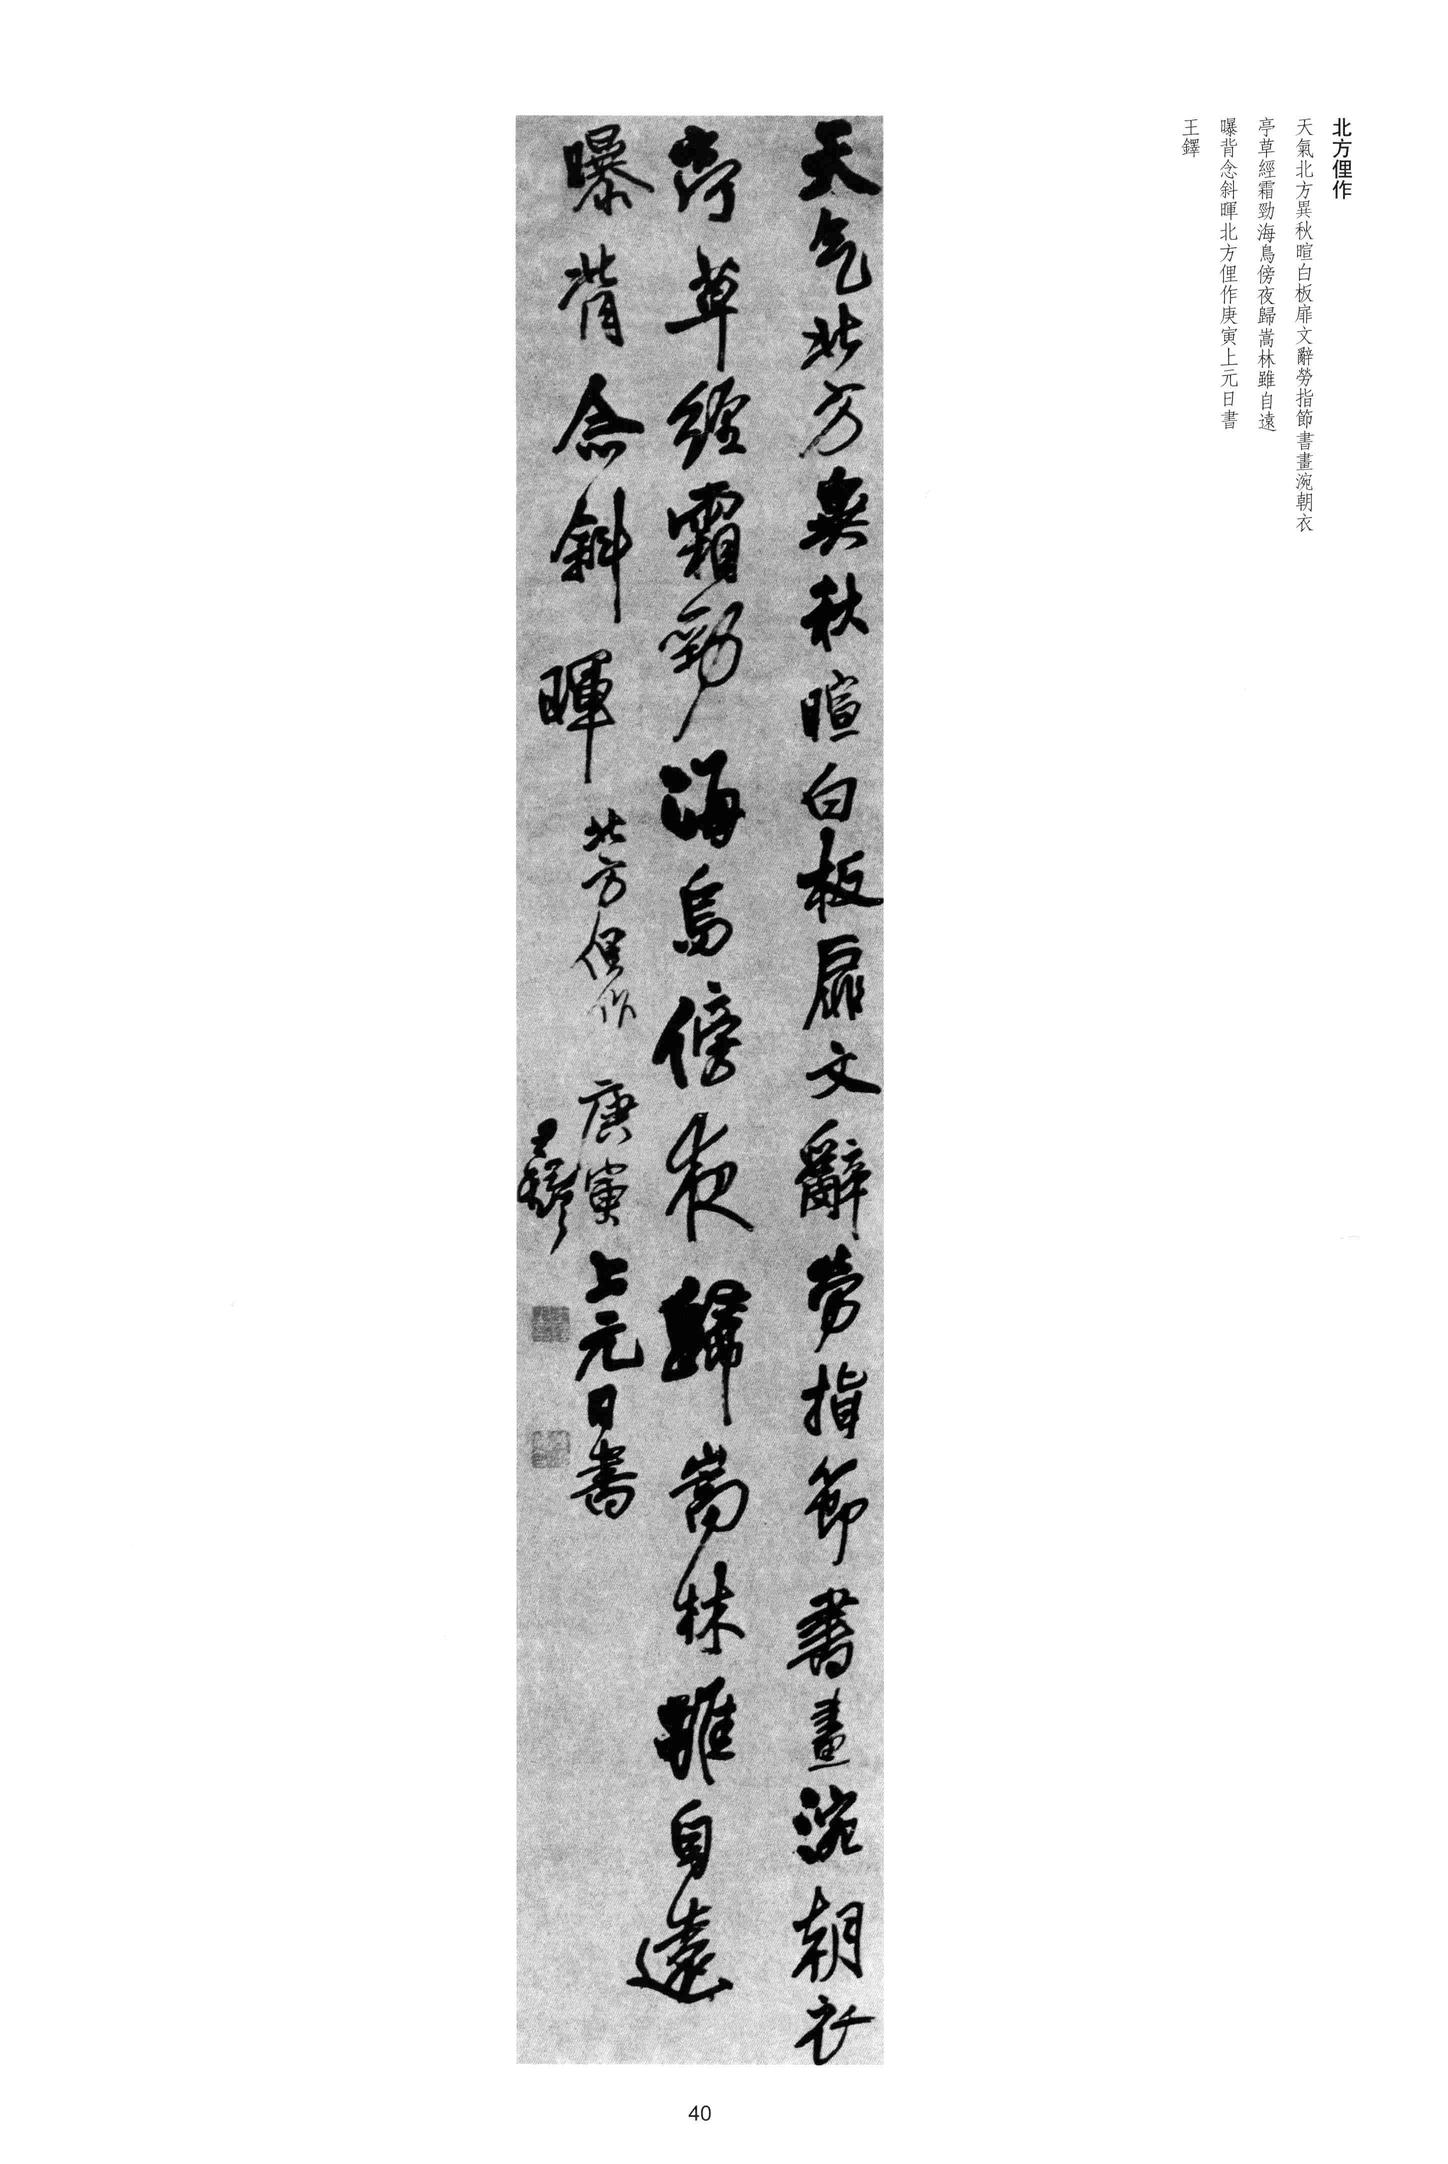 北方俚作
天氣北方異秋暄白板扉文辭勞指節書畫涴朝衣
亭草經霜勁海鳥傍夜歸嵩林雖自遠
曝背念斜暉北方俚作庚寅上元日書
王鐸
天气北方異秋暄白板扉文辭勞指節書畫涴朝衣
亭草經霜勁海鳥傍夜歸嵩林雖自遠
曝背念斜暉 北方俚作 庚寅上元日書
王鐸
40